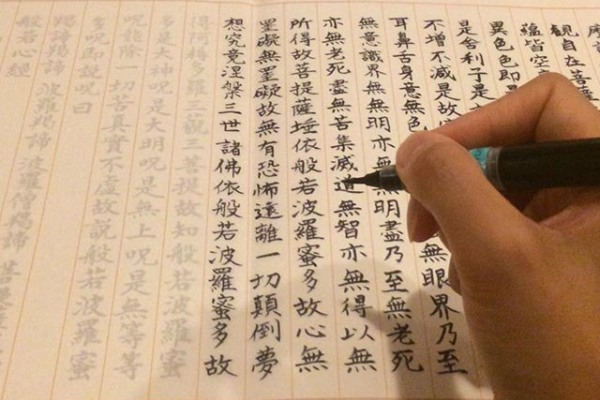 観自在菩薩
蘊皆空
異色色即是
是舎利子是
不增不減是故
耳鼻舌身意無色 無眼界乃至
無意識界無無明亦無無明盡乃至無老死
亦無老死盡無苦集滅道無智亦無得以無
所得故菩提薩埵依般若波羅蜜多故心無
罣礙無罣礙故無有恐怖遠離一切顛倒夢
想究竟涅槃三世諸佛依般若波羅蜜多故
得阿耨多羅三藐三菩提故知般若波羅蜜
多是大神呪是大明呪是無上呪是無等等
呪能除一切苦真實不虚故説般若波羅蜜
多呪即説呪曰
羯諦羯諦 波羅羯諦 波羅僧羯諦 菩提
般若心經